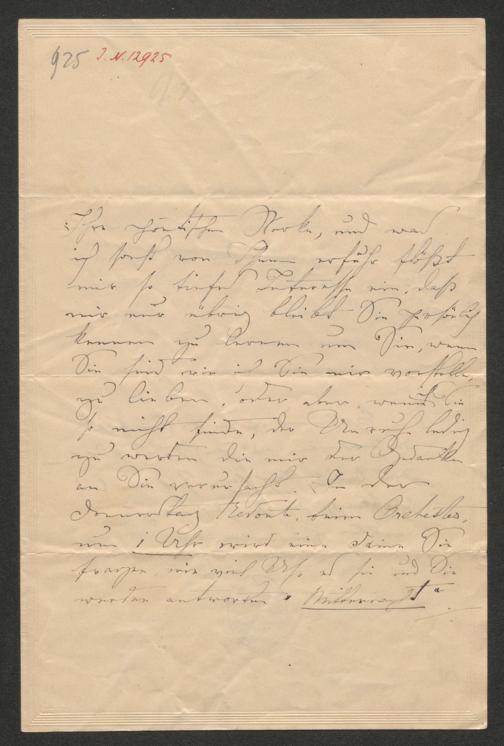 925 I.N. 12925
Ihre poetischen Werke, und was
ich sonst von Ihnen erfuhr flößt
mir so tiefes Interesse ein, daß
mir nur übrig bleibt Sie persönlich
kennen zu lernen um Sie, wenn
Sie sind wie ich Sie mir vorstelle,
zu lieben, oder aber, wenn ich Sie
so nicht finde, der Unruhe ledig
zu werden die mir der Gedanke
an Sie verursacht. In der
Donnerstag Redoute, beim Orchester,
um 1 Uhr wird eine Dame Sie
fragen wie viel Uhr es sei und Sie
werden antworten „Mitternacht"